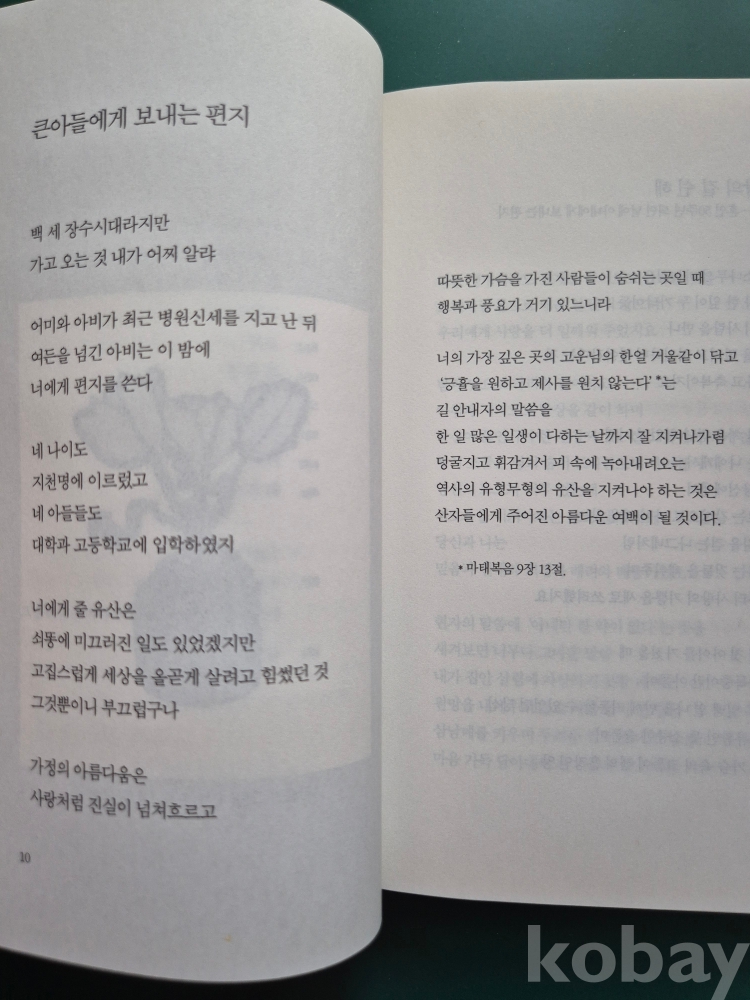 큰아들에게 보내는 편지
백 세 장수시대라지만
가고 오는 것 내가 어찌 알랴
어미와 아비가 최근 병원신세를 지고 난 뒤
여든을 넘긴 아비는 이 밤에
너에게 편지를 쓴다
네 나이도
지천명에 이르렀고
네 아들들도
대학과 고등학교에 입학하였지
너에게 줄 유산은
쇠똥에 미끄러진 일도 있었겠지만
고집스럽게 세상을 올곧게 살려고 힘썼던 것
그것뿐이니 부끄럽구나
가정의 아름다움은
사랑처럼 진실이 넘쳐흐르고
10
따뜻한 가슴을 가진 사람들이 숨쉬는 곳일 때
행복과 풍요가 거기 있느니라
너의 가장 깊은 곳의 고운님의 한얼 거울같이 닦고
'긍휼을 원하고 제사를 원치 않는다'*는
길 안내자의 말씀을
한 일 많은 일생이 다하는 날까지 잘 지켜나가렴
덩굴지고 휘감겨서 피 속에 녹아내려오는
역사의 유형무형의 유산을 지켜나야 하는 것은
산자들에게 주어진 아름다운 여백이 될 것이다.
* 마태복음 9장 13절.
kobay